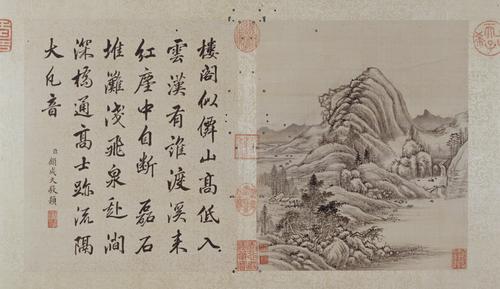 樓閣似僊山高低入
雲漢有誰渡溪来
紅塵中自断磊石
堆灘淺飛泉赴澗
深橋通高士跡流隔
大凡音
臣顧成天敬題